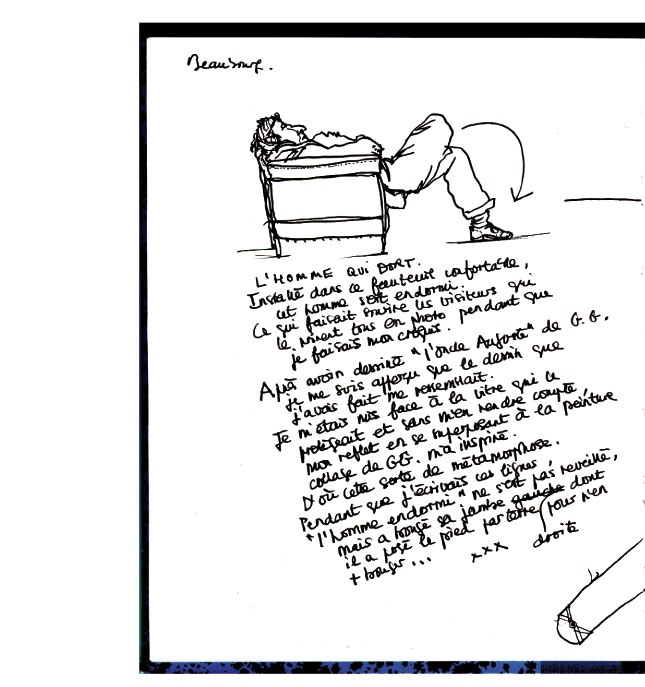 Beaubourg.
L'HOMME QUI DORT.
Installé dans ce fauteuil confortable,
cet homme s'est endormi.
Ce qui faisait sourire les visiteurs qui
le prirent tous en photo pendant que
je faisais mon croquis.
Après avoir dessiné "l'oncle Auguste" de G.G.
je me suis aperçu que le dessin que
j'avais fait me ressemblait.
Je m'étais mis face à la vitre qui le
protégeait et sans m'en rendre compte,
mon reflet en se superposant à la peinture
collage de GG. m'a inspiré.
D'où cette sorte de métamorphose.
Pendant que j'écrivais ces lignes,
"l'homme endormi" ne s'est pas réveillé,
mais a bougé sa jambe gauche dont
il a posé le pied par terre pour n'en
+ bouger... xxx droite